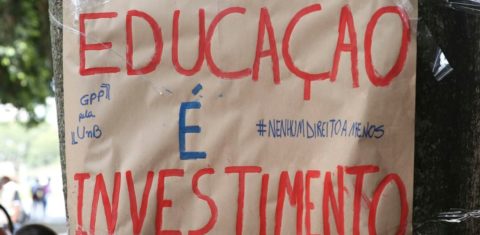 EDUCAÇÃO
GPP
pela
UnB
É
#NENHUMDIREITOAMENOS
INVESTIMENTO